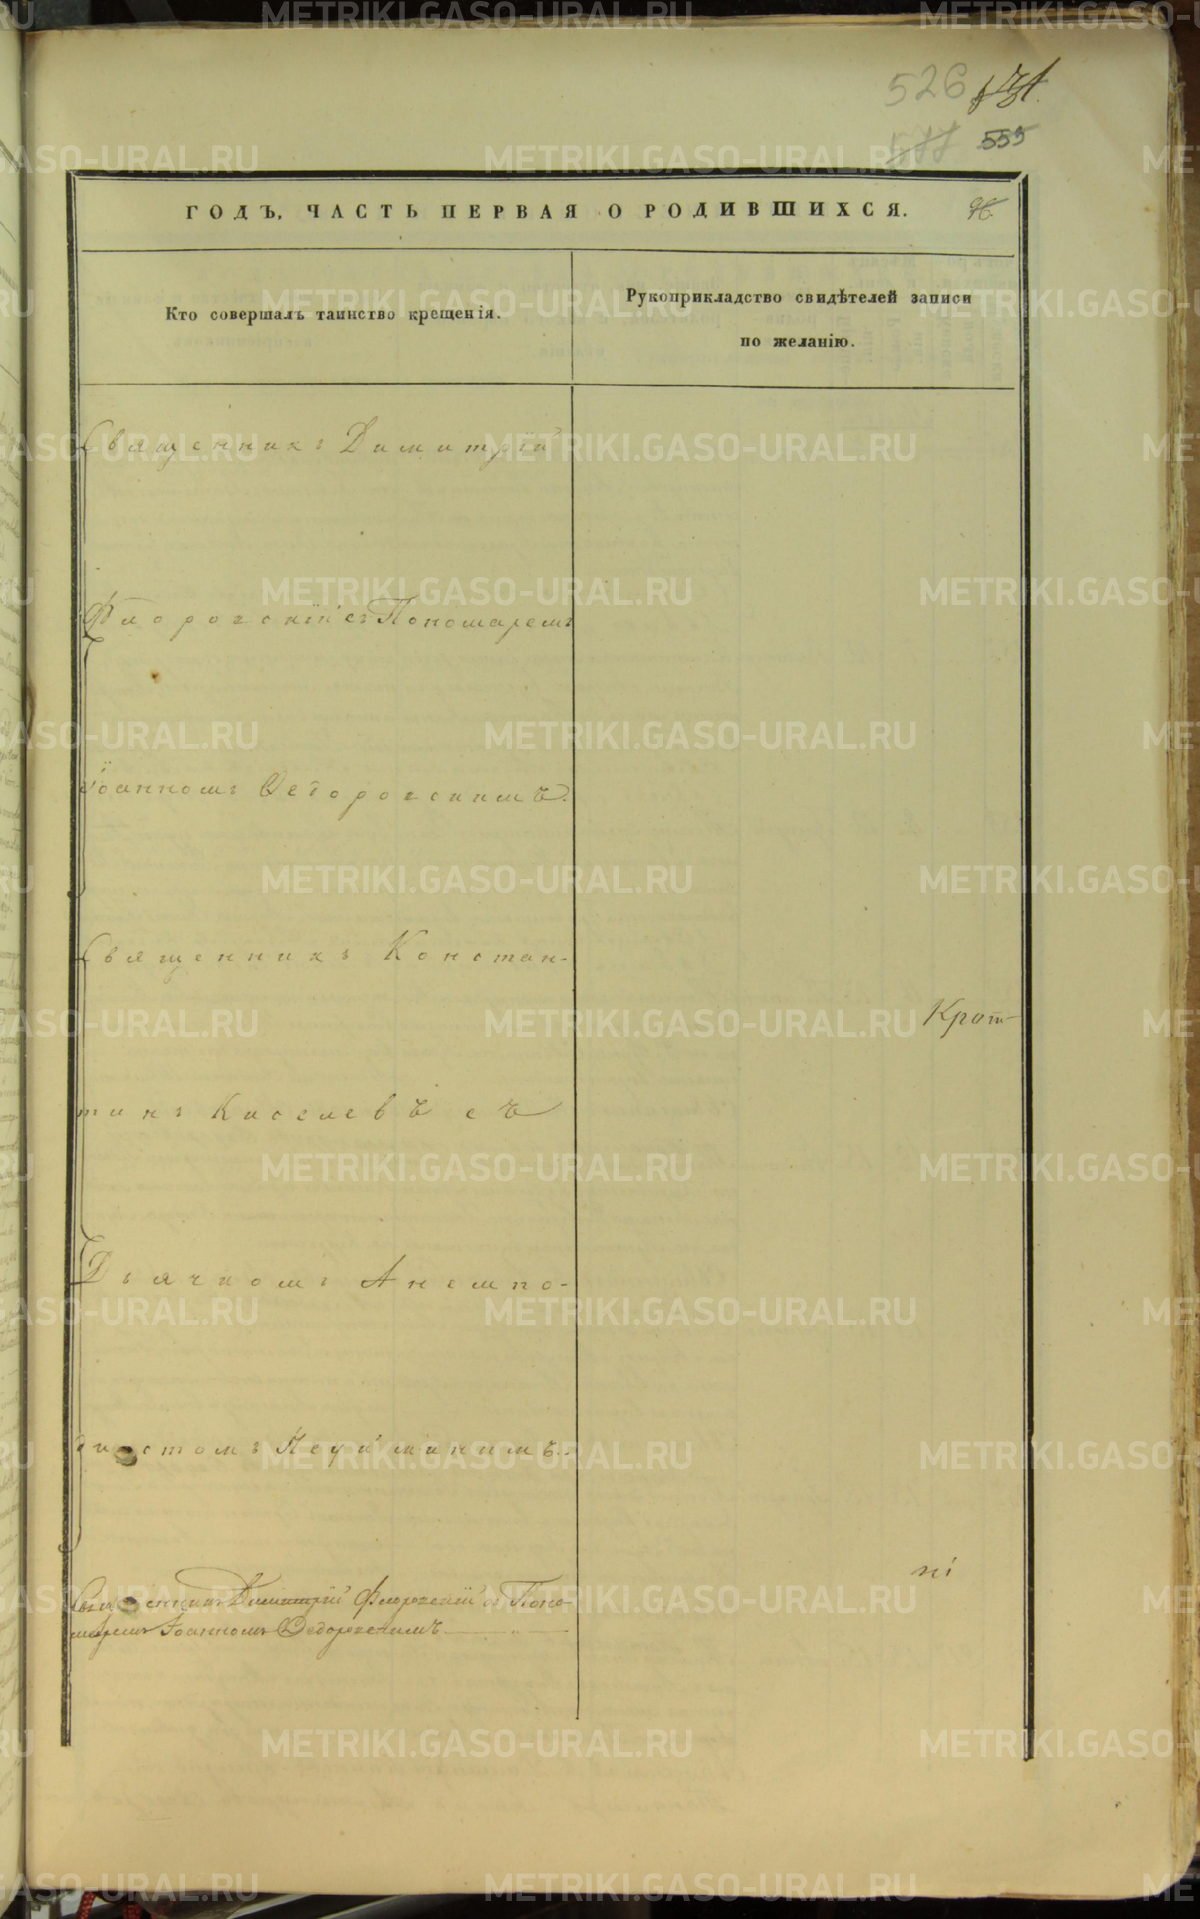 526
555
ГОДЪ, ЧАСТЬ ПЕРВАЯ О РОДИВШИХСЯ.
Кто совершалъ таинство крещенія.
Рукоприкладство свидѣтелей записи
по желанію.
Священникъ Димитрій
Флоровскій съ Пономаремъ
Іоанномъ Ѳедоровскимъ.
Священникъ Констан-
Крот
тинъ Киселевъ съ
Дьячкомъ Анемпо-
дистомъ
Священникъ Димитрій Флоровскій съ Поно-
маремъ Іоанномъ Ѳедоровскимъ
METRIKI.GASO-URAL.RU